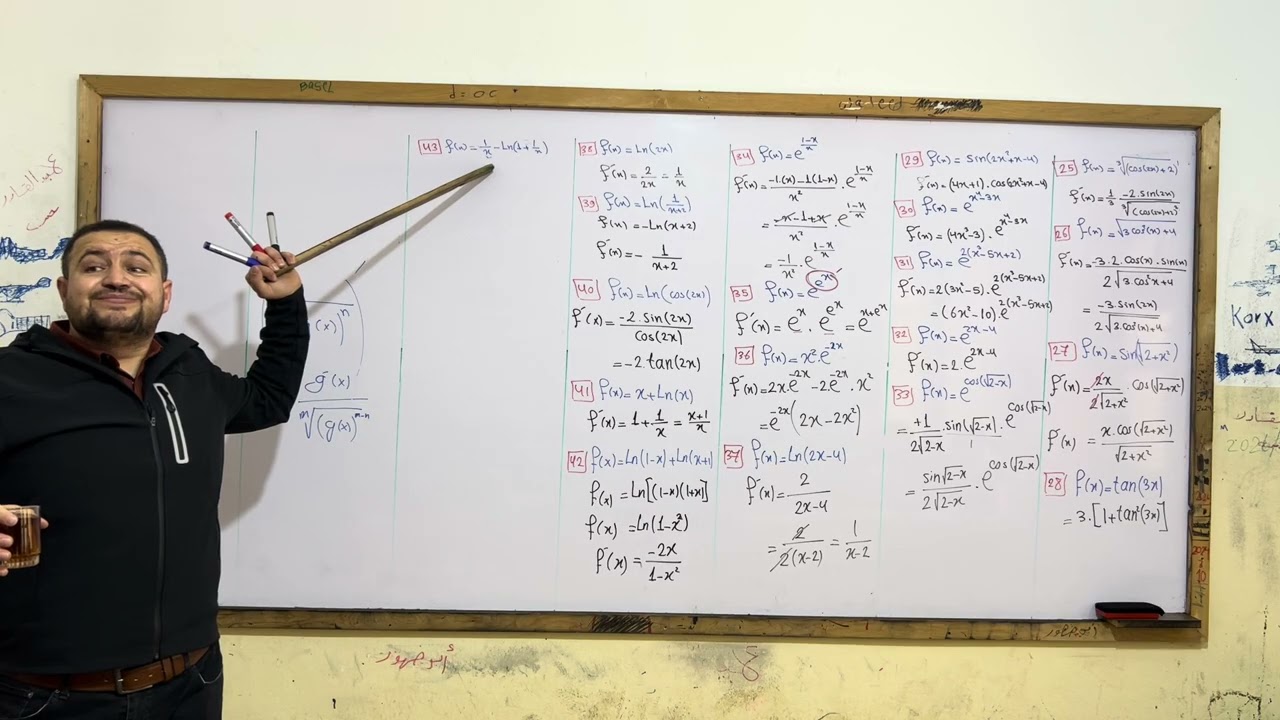 BaSEL
d = oc
43 f(x) = -1/x - Ln(1 + 1/x)
(x)^n
g'(x)
m√(g(x))^{m-n}
38 f(x) = Ln(2x)
f'(x) = 2/2x = 1/x
39 f(x) = Ln(1/(x+2))
f(x) = -Ln(x+2)
f'(x) = - 1/(x+2)
40 f(x) = Ln(cos(2x))
f'(x) = -2.sin(2x)/cos(2x)
= -2.tan(2x)
41 f(x) = x + Ln(x)
f'(x) = 1 + 1/x = (x+1)/x
42 f(x) = Ln(1-x) + Ln(x+1)
f(x) = Ln[(1-x)(1+x)]
f(x) = Ln(1-x²)
f'(x) = -2x/(1-x²)
34 f(x) = e^{(1-x)/x}
f'(x) = (-1.(x) - 1(1-x))/x² . e^{(1-x)/x}
= (-x - 1 + x)/x² . e^{(1-x)/x}
= -1/x² . e^{(1-x)/x}
35 f(x) = e^{e^x}
f'(x) = e^x . e^{e^x} = e^{x+e^x}
36 f(x) = x² . e^{-2x}
f'(x) = 2x e^{-2x} - 2e^{-2x} . x²
= e^{-2x}(2x - 2x²)
37 f(x) = Ln(2x-4)
f'(x) = 2/(2x-4)
= 2/(2(x-2)) = 1/(x-2)
29 f(x) = sin(2x²+x-4)
f'(x) = (4x+1) . cos(2x²+x-4)
30 f(x) = e^{x²-3x}
f'(x) = (4x-3) . e^{x²-3x}
31 f(x) = e^{(x²-5x+2)}
f'(x) = 2(3x-5) . e^{2(x²-5x+2)}
= (6x-10) . e^{2(x²-5x+2)}
32 f(x) = e^{2x-4}
f'(x) = 2 . e^{2x-4}
33 f(x) = e^{cos(√2-x)}
= +1/(2√2-x) . sin(√2-x) . e^{cos(√2-x)}
= sin√2-x/(2√2-x) . e^{cos(√2-x)}
25 f(x) = ³√(cos(2x)+2)
f'(x) = -2.sin(2x)/³√(cos(2x)+2)²
26 f(x) = √3.cos²(x)+4
f'(x) = -3.2.cos(x).sin(x)/(2√3.cos²x+4)
= -3.sin(2x)/(2√3.cos²(x)+4)
27 f(x) = sin(√2+x²)
f'(x) = 2x/(2√2+x²) . cos(√2+x²)
f'(x) = x.cos(√2+x²)/√2+x²
28 f(x) = tan(3x)
= 3.[1+tan²(3x)]
Korx